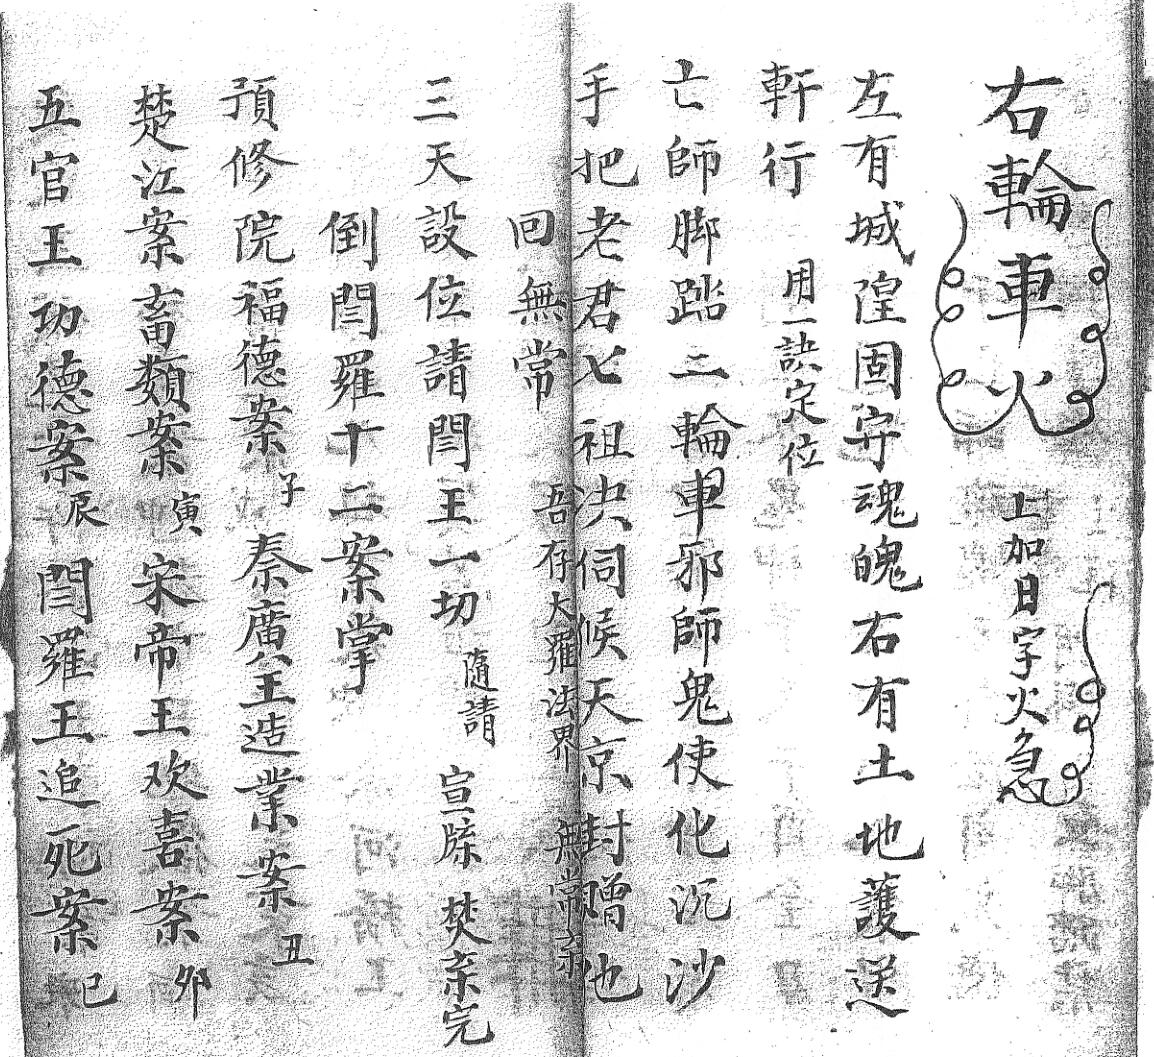 右輪車火 上加日字火急
左有城隍固守魂魄右有土地護送
軒行 用一訣定位
亡師脚踏二輪車邪師鬼使化沉沙
手把老君七祖决伺候天京封贈他
回無常 吾存大羅法界 無常亲
三天設位請閆王一切 隨請 宣牒 焚亲完
倒閆羅十二案掌
預修院福德案子 秦廣王造業案丑
楚江案畜類案寅 宋帝王欢喜案卯
五官王功德案辰 閆羅王追死案巳